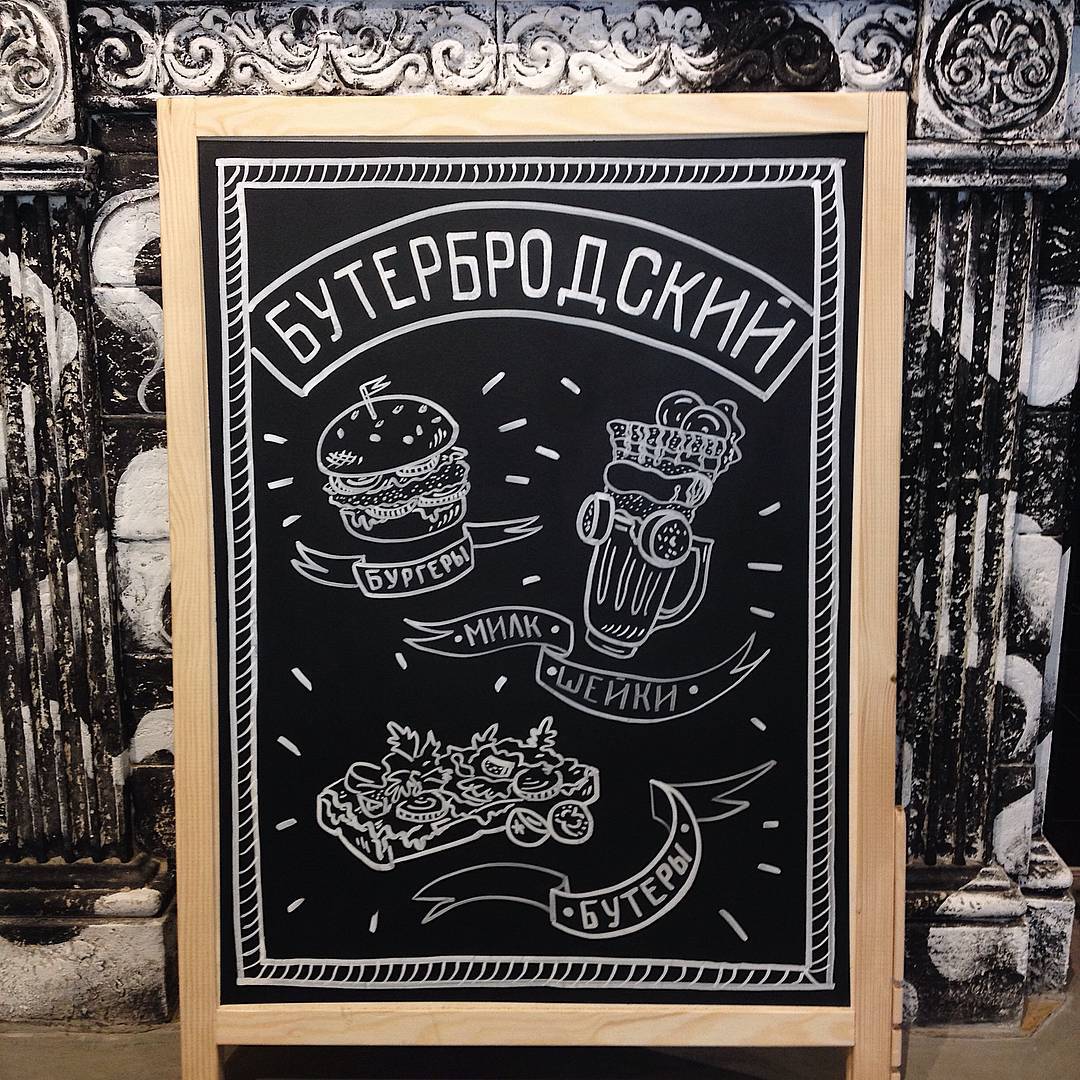 БУТЕРБРОДСКИЙ
БУРГЕРЫ
•МИЛК•
•ШЕЙКИ•
•БУТЕРЫ•